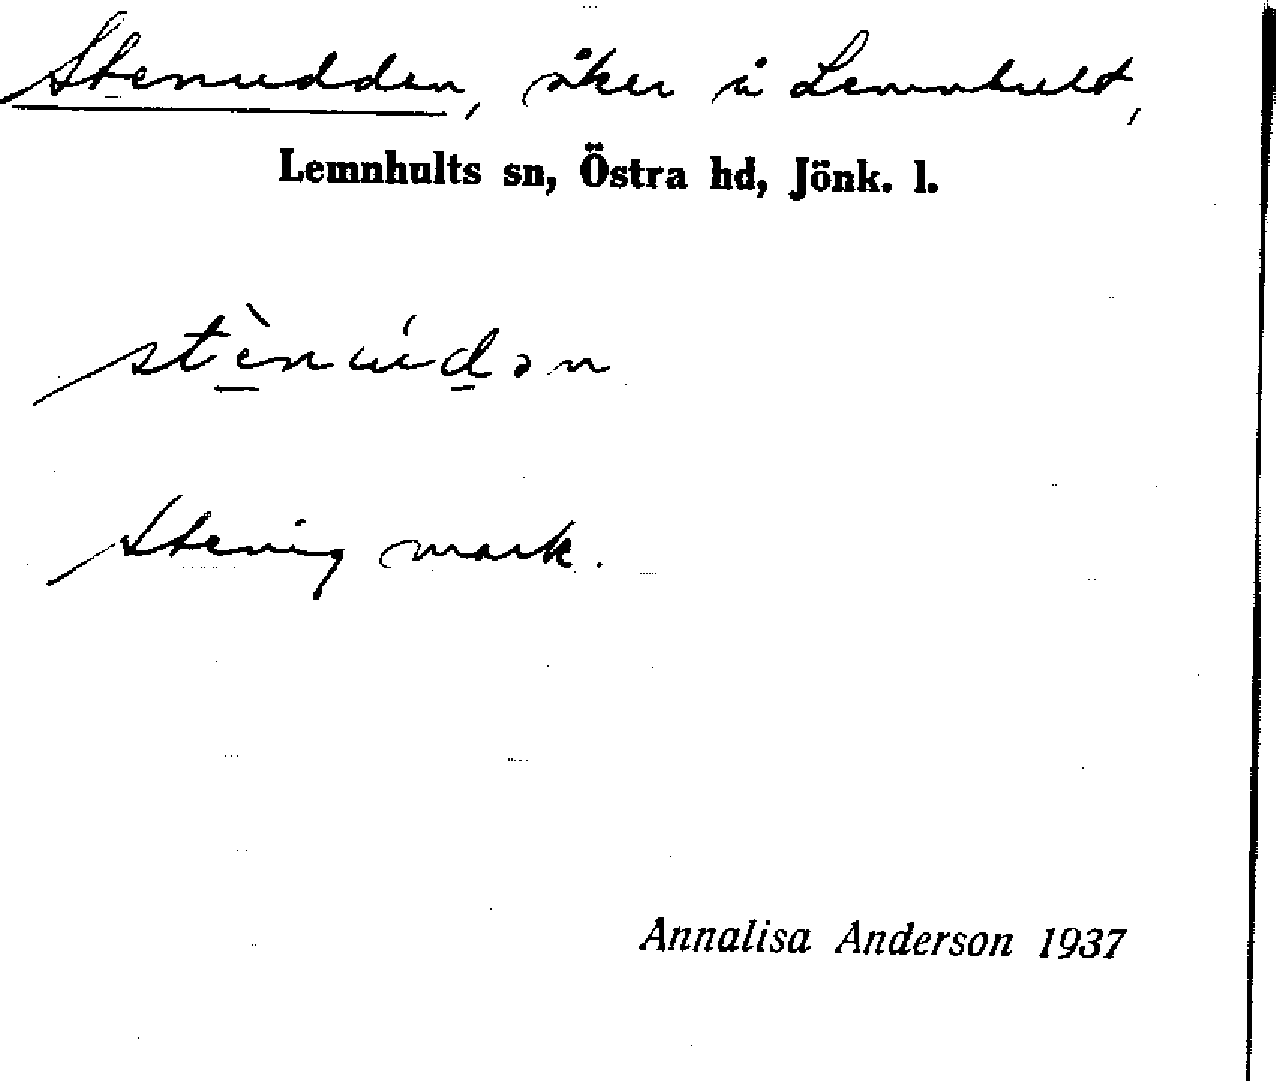 Stenudden, åker å Lemnhult,
Lemnhults sn, Östra hd, Jönk. l.
stè̱núḏən
Stenig mark.
Annalisa Anderson 1937